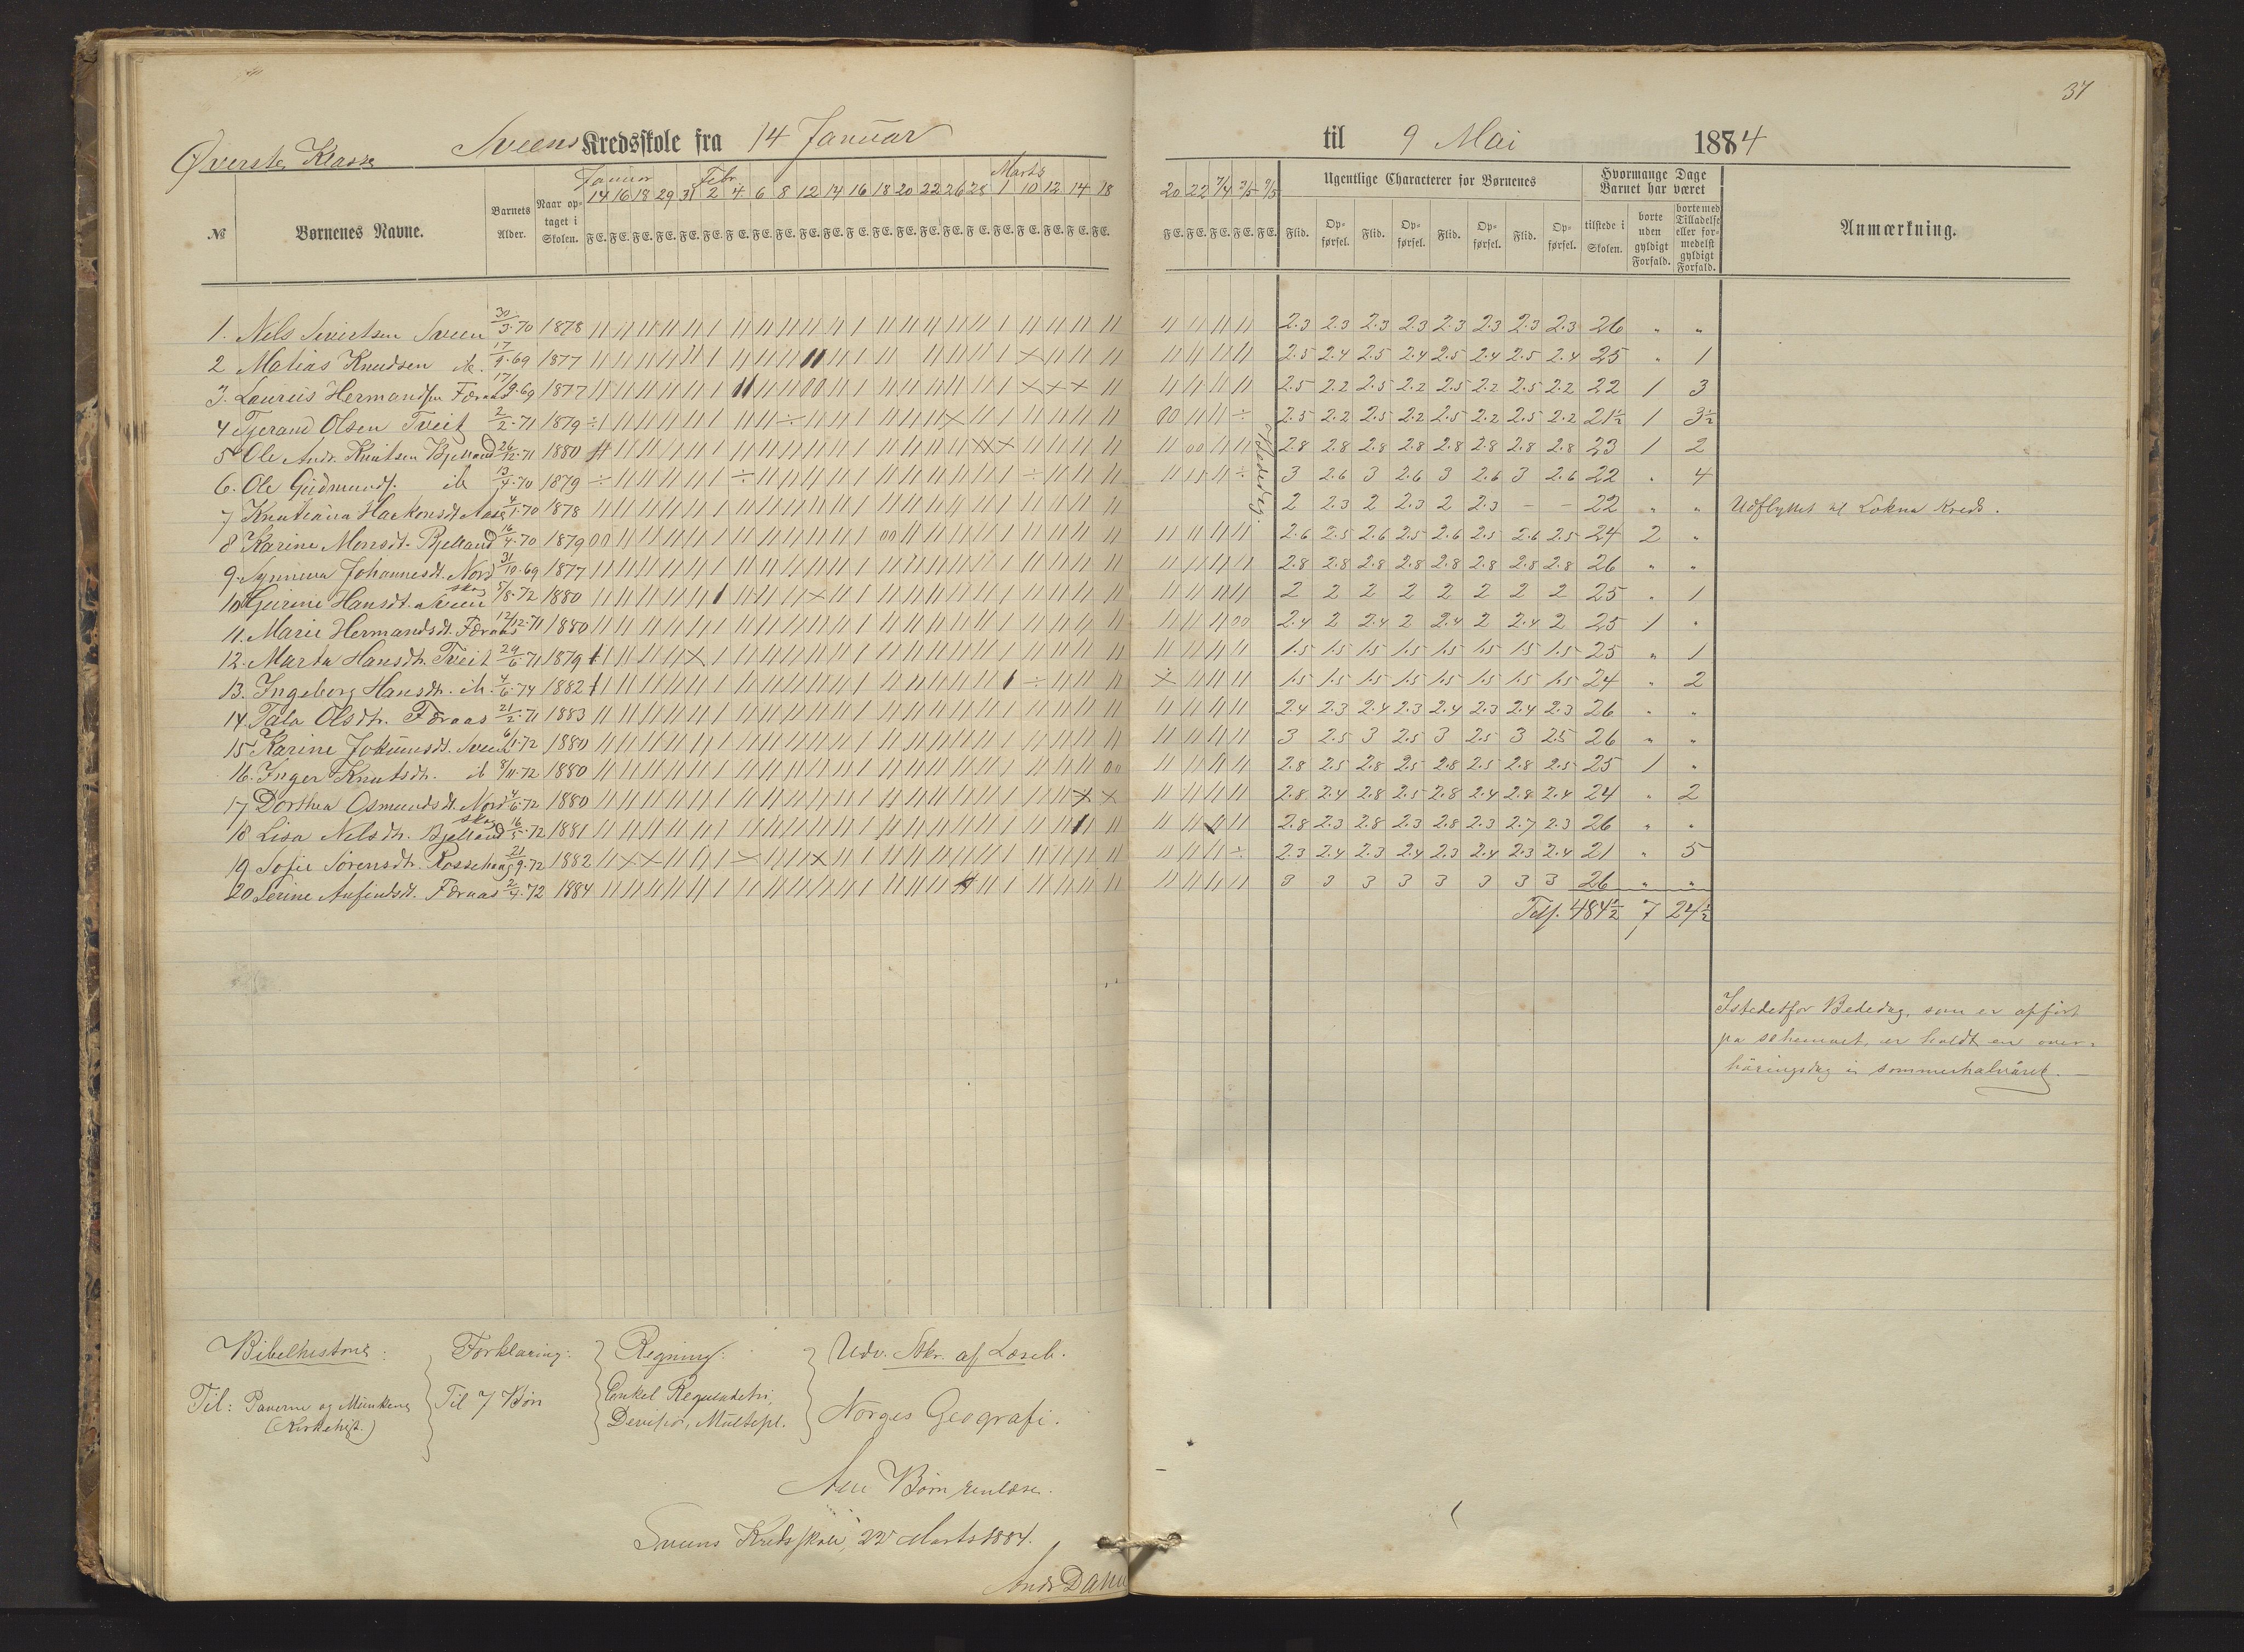 37
Øverste Klasse Sveens Kredsskole fra 14 Januar til 9 Mai 1884
Januar Febr. Marts
№ Børnenes Navne. Barnets Alder. Naar optaget i Skolen. 14 16 18 29 31 2 4 6 8 12 14 16 18 20 22 26 28 1 10 12 14 18 20 22 7/4 2/5 9/5
F E. F E. F E. F E. F E. F E. F E. F E. F E. F E. F E. F E. F E. F E. F E. F E. F E. F E. F E. F E. F E. F E. F E. F E. F E. F E. F E.
Ugentlige Characterer for Børnenes
Flid. Opførsel. Flid. Opførsel. Flid. Opførsel. Flid. Opførsel.
Hvormange Dage Barnet har været
tilstede i Skolen. borte uden gyldigt Forfald. borte med Tilladelse eller formedelst gyldigt Forfald.
Anmærkning.
1. Nels Sivertsen Sveen 30/3.70 1878 2.3 2.3 2.3 2.3 2.3 2.3 2.3 2.3 26 " "
2 Matias Knudsen ib. 17/4.69 1877 2.5 2.4 2.5 2.4 2.5 2.4 2.5 2.4 25 " 1
3. Laurits Hermandsen Færaas 17/9.69 1877 2.5 2.2 2.5 2.2 2.5 2.2 2.5 2.2 22 1 3
4 Tjerand Olsen Tveit 2/2.71 1879 2.5 2.2 2.5 2.2 2.5 2.2 2.5 2.2 21½ 1 3½
5 Ole Andr. Knutsen Bjelland 26/12.71 1880 2.8 2.8 2.8 2.8 2.8 2.8 2.8 2.8 23 1 2
6. Ole Gudmunds. ib 13/4.70 1879 3 2.6 3 2.6 3 2.6 3 2.6 22 " 4
7 Knutiana Haakonsdt. Aase 4/1.70 1878 2 2.3 2 2.3 2 2.3 – – 22 " " Udflyttet til Lokna Kreds.
8 Karine Monsdt. Bjelland 16/4.70 1879 2.6 2.5 2.6 2.5 2.6 2.5 2.6 2.5 24 2 "
9. Synneva Johannesdt. Nordskog 31/10.69 1877 2.8 2.8 2.8 2.8 2.8 2.8 2.8 2.8 26 " "
10 Gurine Hansdt. Sveen 5/8.72 1880 2 2 2 2 2 2 2 2 25 " 1
11. Marie Hermandsdt. Færaas 12/12.71 1880 2.4 2 2.4 2 2.4 2 2.4 2 25 1 "
12. Marta Hansdtr. Tveit 29/6.71 1879 1.5 1.5 1.5 1.5 1.5 1.5 1.5 1.5 25 " 1
13. Ingeborg Hansdtr. ib. 4/6.74 1882 1.5 1.5 1.5 1.5 1.5 1.5 1.5 1.5 24 " 2
14 Tala Olsdtr. Færaas 21/2.71 1883 2.4 2.3 2.4 2.3 2.4 2.3 2.4 2.3 26 " "
15 Karine Jokumsdt. Sveen 6/1.72 1880 3 2.5 3 2.5 3 2.5 3 2.5 26 " "
16. Inger Knutsdtr. ib 8/11.72 1880 2.8 2.5 2.8 2.5 2.8 2.5 2.8 2.5 25 1 "
17 Dorthea Osmundsdt. Nordskog 4/6.72 1880 2.8 2.4 2.8 2.5 2.8 2.4 2.8 2.4 24 " 2
18 Lisa Nelsdtr. Bjelland 16/5.72 1881 2.8 2.3 2.8 2.3 2.8 2.3 2.7 2.3 26 " "
19 Sofie Sorensdtr. Rossehaug 21/9.72 1882 2.3 2.4 2.3 2.4 2.3 2.4 2.3 2.4 21 " 5
20 Serine Anfindsdt. Færaas 2/4.72 1884 3 3 3 3 3 3 3 3 26 " "
Bededag.
Tils. 484½ 7 24½
Istedetfor Bededag, som er opfört
pa schemaet, er holdt en over-
höringsdag i sommerhalvåret.
Bibelhistorie: Forklaring: Regning. Udv. Stkr. af Læseb.
Til: Paverne og Munkene Til 7 Bön Enkel Reguladetri,
(Kirkehist.) Devision, Multipl. Norges Geografi.
Börn
Sveens Kredsskole, 22 Marts 1884.
Andr Dahl